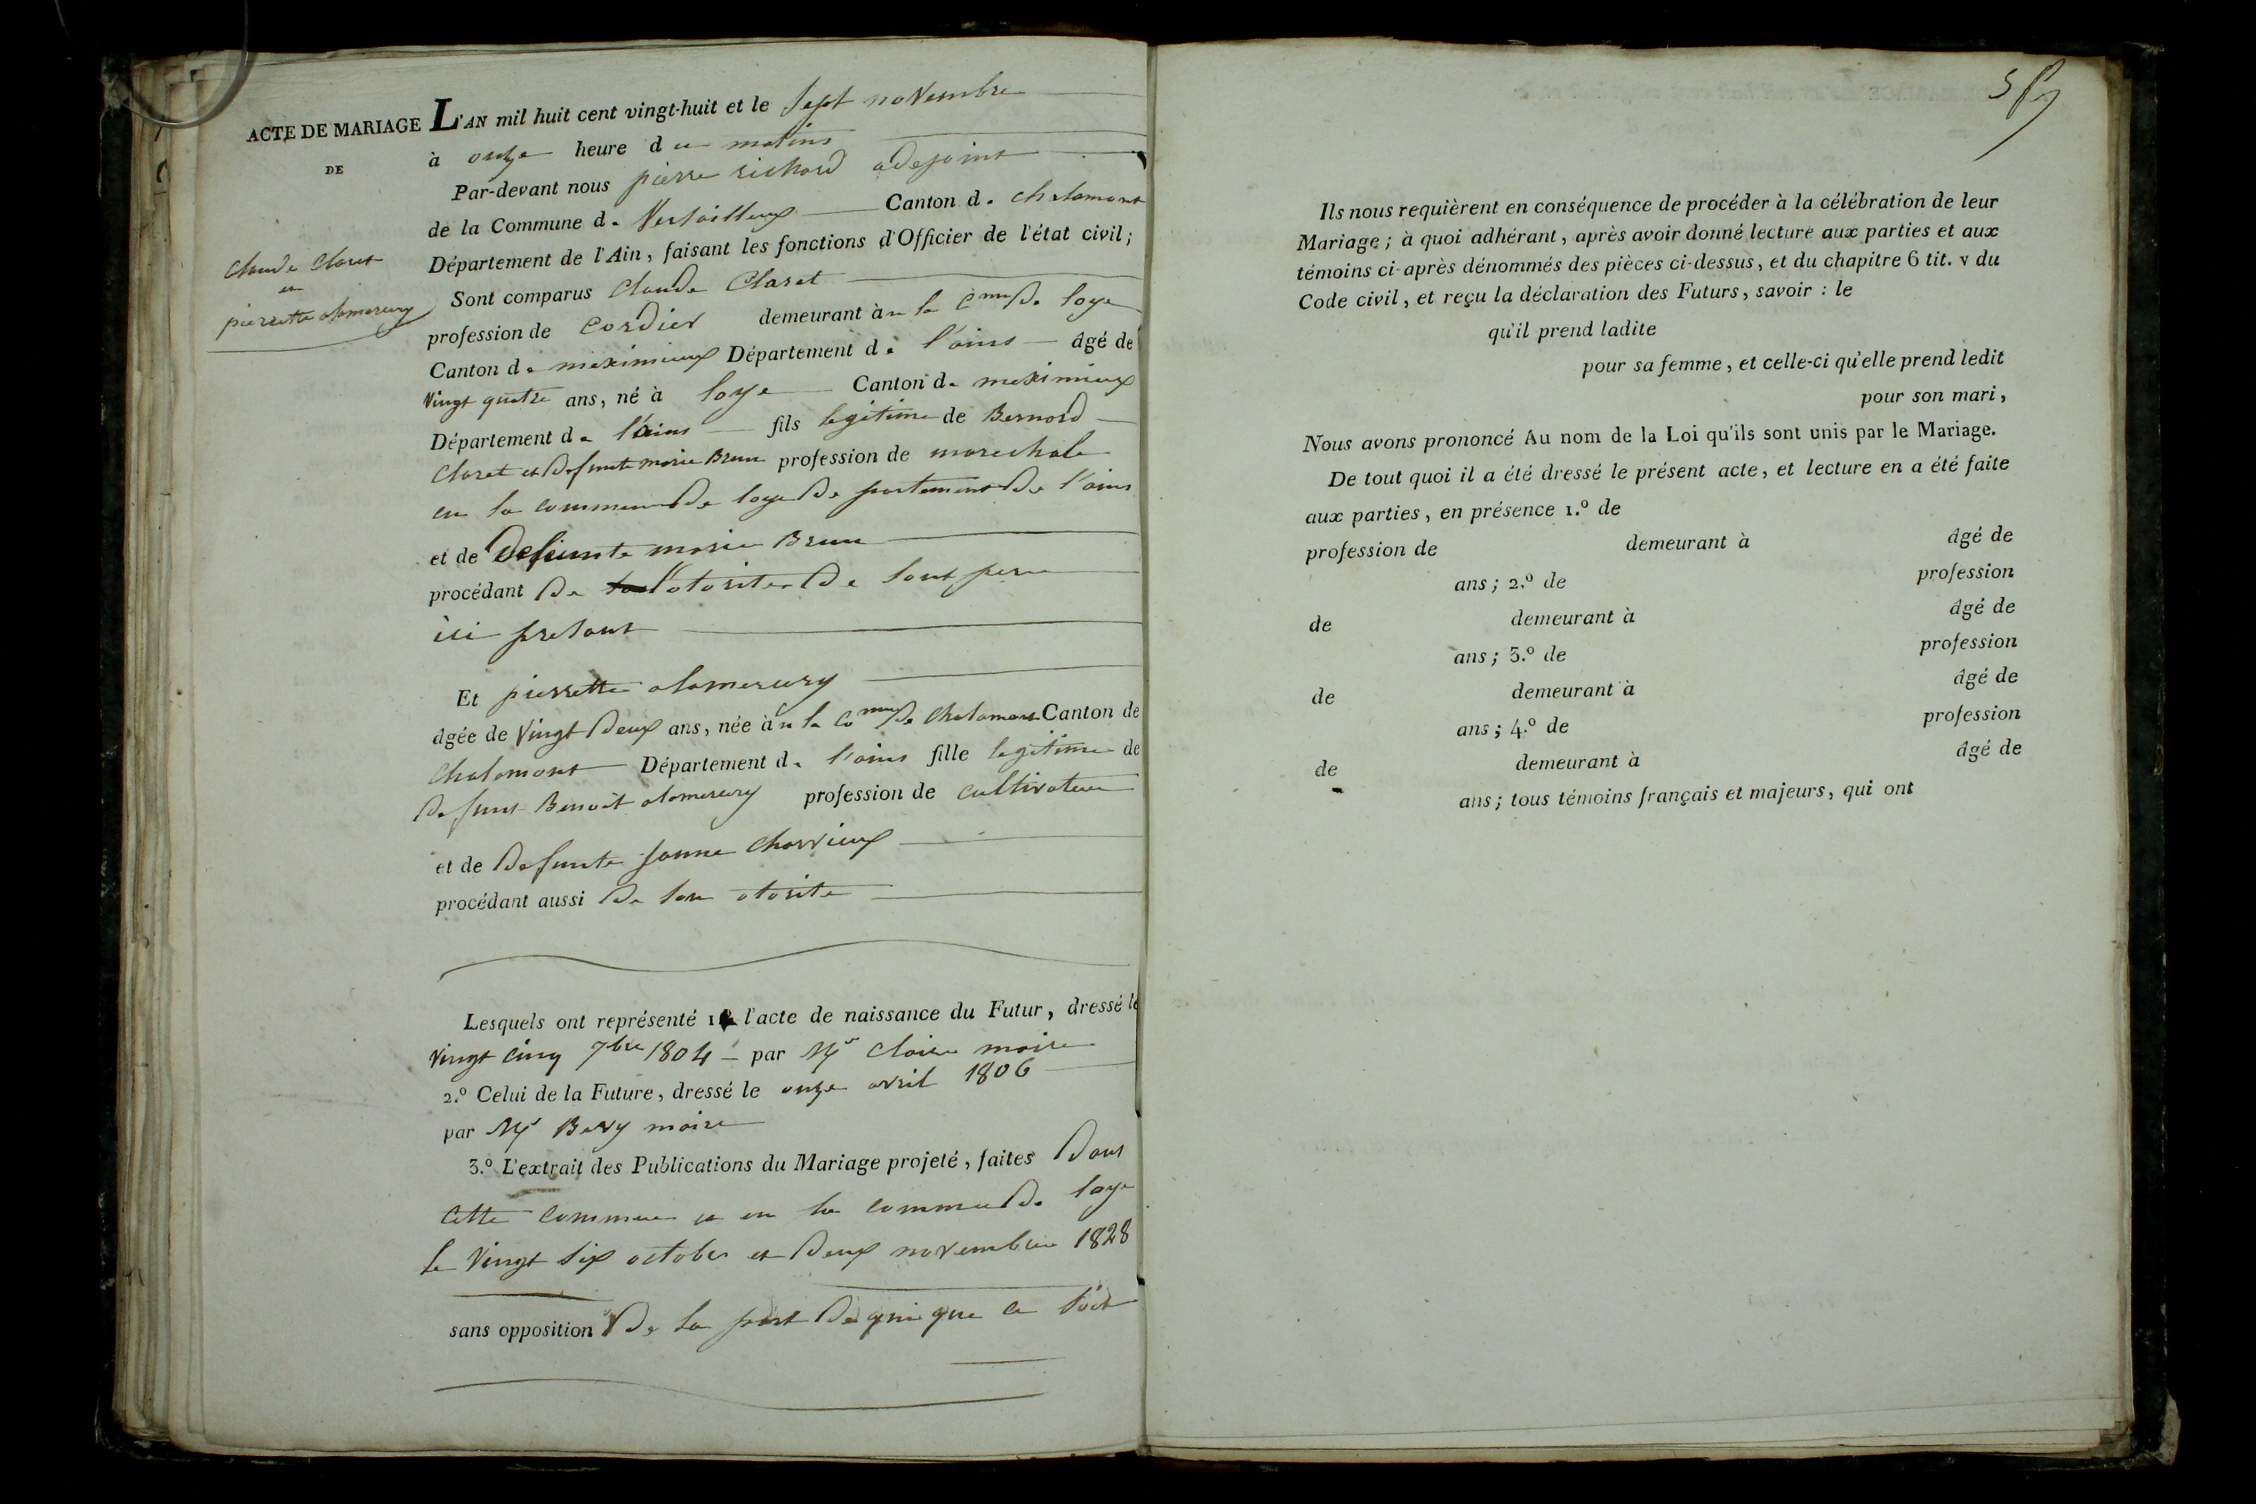 ACTE DE MARIAGE
DE
Claude Claret
et
pierrette alamercery
L'AN mil huit cent vingt-huit et le sept novembre
à onze heure du matins
Par-devant nous pierre richard adejoint
de la Commune de Versailleux Canton de chalamont
Département de l'Ain, faisant les fonctions d'Officier de l'état civil;
Sont comparus Claude Claret
profession de Cordier demeurant àn la Cmune de loye
Canton de meximieux Département de l'ains âgé de
vingt quatre ans, né à loye Canton de meximieux
Département de l'ains fils legitime de Bernard
Claret et defunte marie Brun profession de marechale
en la commune de loye departement de l'ains
et de Defunte marie Brun
procédant de l'otorite de sont pere
ici presant
Et pierrette alamercery
âgée de vingt deux ans, née àn la Comune de chalamont Canton de
Chalamont Département de l'ains fille legitime de
defunt Benoit alamercery profession de cultivateur
et de defunte janne Charvieux
procédant aussi de son otorite
Lesquels ont représenté 1º l'acte de naissance du Futur, dressé le
vingt cinq 7bre 1804 par Mr Claire maire
2.º Celui de la Future, dressé le onze avril 1806
par Mr Bery maire
3.º L'extrait des Publications du Mariage projeté, faites dans
Cette commune et en la commune de loye
le vingt six octobre et deux novembre 1828
sans opposition de la part de qui que ce soit
5
Ils nous requièrent en conséquence de procéder à la célébration de leur
Mariage; à quoi adhérant, après avoir donné lecture aux parties et aux
témoins ci-après dénommés des pièces ci-dessus, et du chapitre 6 tit. v du
Code civil, et reçu la déclaration des Futurs, savoir : le
qu'il prend ladite
pour sa femme, et celle-ci qu'elle prend ledit
pour son mari,
Nous avons prononcé Au nom de la Loi qu'ils sont unis par le Mariage.
De tout quoi il a été dressé le présent acte, et lecture en a été faite
aux parties, en présence 1.º de
profession de demeurant à âgé de
ans; 2.º de profession
de demeurant à âgé de
ans; 3.º de profession
de demeurant à âgé de
ans; 4.º de profession
de demeurant à âgé de
ans; tous témoins français et majeurs, qui ont